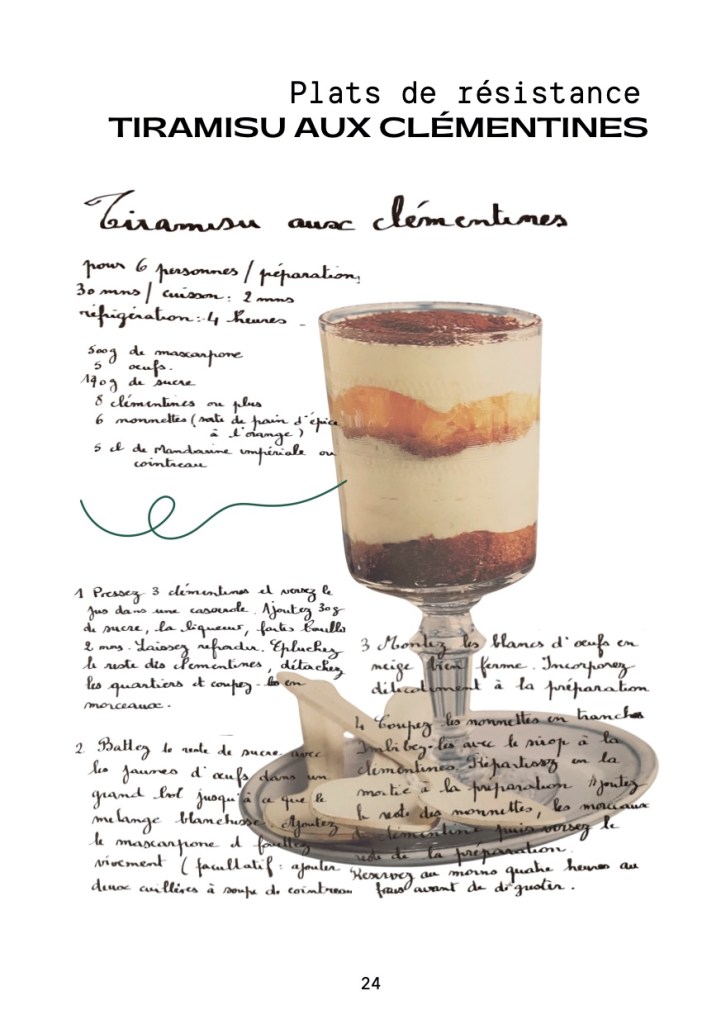 Plats de résistance
TIRAMISU AUX CLÉMENTINES
Tiramisu aux clémentines
pour 6 personnes / préparation,
30 mns / cuisson : 2 mns
réfrigération : 4 heures
500g de mascarpone
5 oeufs.
190g de sucre
8 clémentines ou plus
6 nonnettes (sorte de pain d'épice
à l'orange)
5 cl de Mandarine impériale ou
cointreau
1 Pressez 3 clémentines et versez le
jus dans une casserole. Ajoutez 30g
de sucre, la liqueur, faites bouillir
2 mns. Laissez refroidir. Epluchez
le reste des clementines, détachez
les quartiers et coupez-les en
morceaux.
2. Battez le reste de sucre avec
les jaunes d'oeufs dans un
grand bol jusqu'à ce que le
melange blanchisse. Ajoutez
le mascarpone et fouettez
vivement (facultatif : ajouter
deux cuillères à soupe de cointreau
3 Montez les blancs d'oeufs en
neige bien ferme. Incorporez
délicatement à la préparation
4 Coupez les nonnettes en tranches
Imbibez-les avec le sirop à la
clementines. Répartissez en la
moitié à la préparation Ajoutez
le reste des nonnettes, les morceaux
de clémentine puis versez le
reste de la préparation.
Reservez au moins quatre heures au
frais avant de déguster.
24